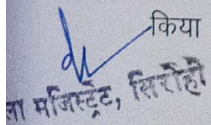 किया
ला मजिस्ट्रेट, सिरोही